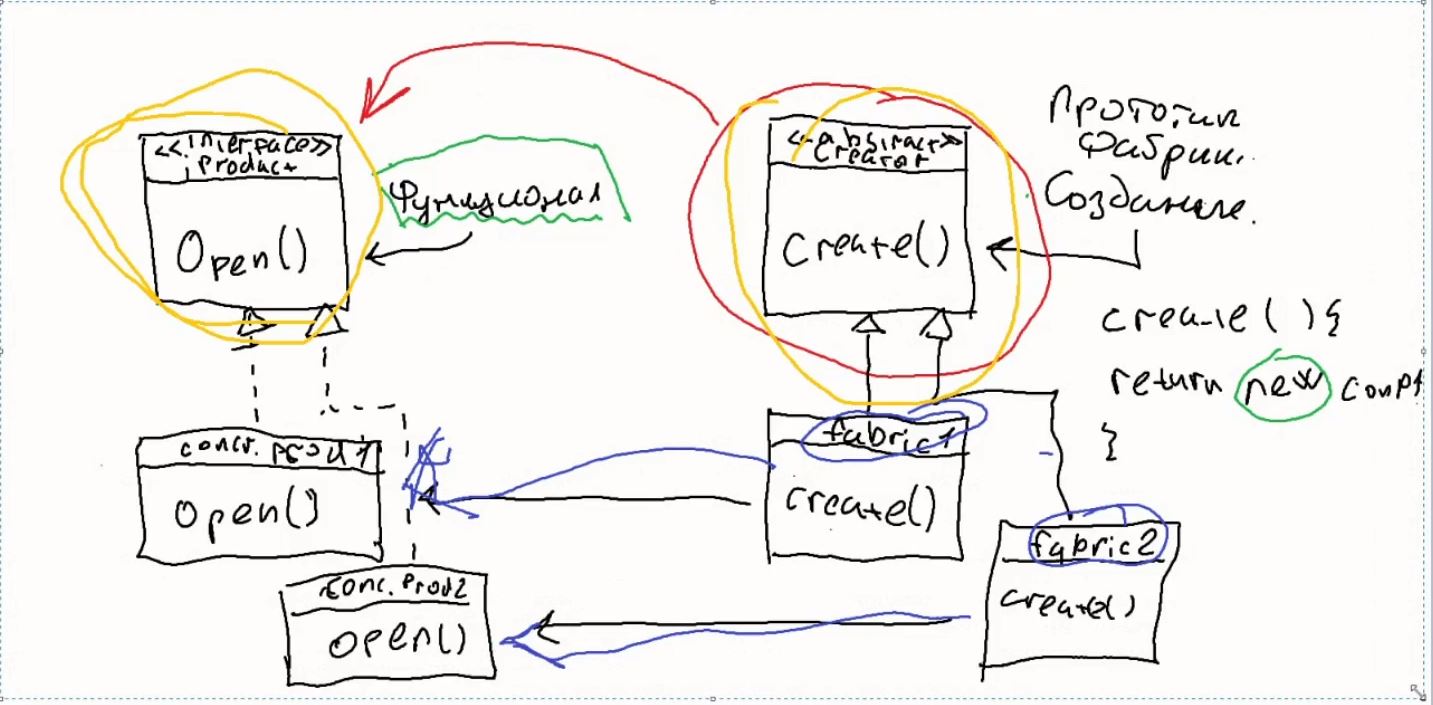 <<interface>>
Product
Open()
Функционал
<<abstract>>
Creator
Create()
Прототип
Фабрик.
Создание.
create(){
return new
}
concr. prod1
Open()
conc. Prod2
open()
fabric1
create()
fabric2
create()